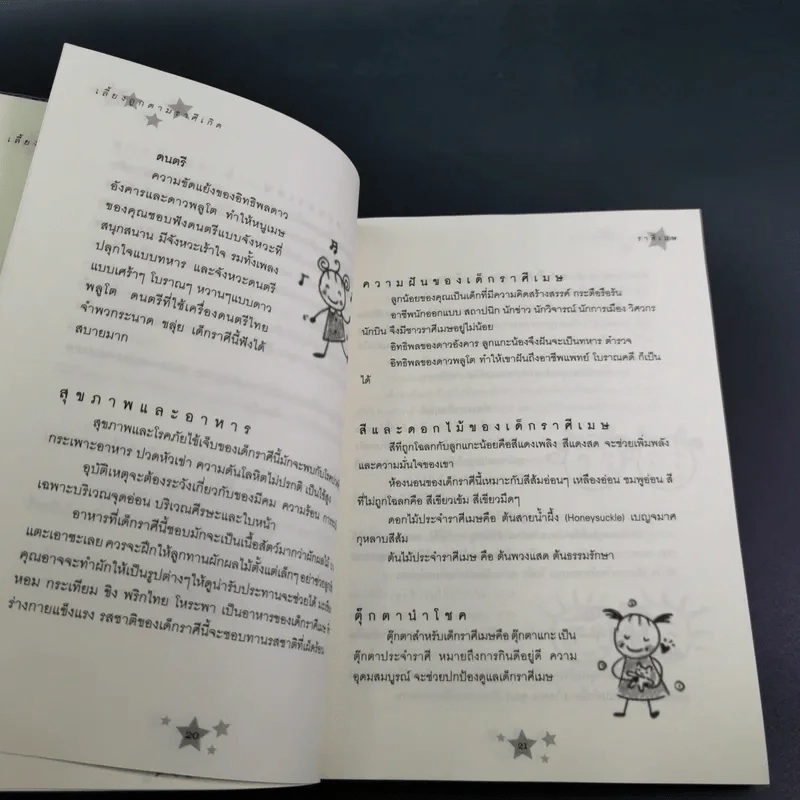 เลี้ยงลูกตามราศีเกิด
ดนตรี
ความขัดแย้งของอิทธิพลดาว
อังคารและดาวพลูโต ทำให้หนูเมษ
ของคุณชอบฟังดนตรีแบบจังหวะที่
สนุกสนาน มีจังหวะเร้าใจ รมทั้งเพลง
ปลุกใจแบบทหาร และจังหวะดนตรี
แบบเศร้าๆ โบราณๆ หวานๆแบบดาว
พลูโต ดนตรีที่ใช้เครื่องดนตรีไทย
จำพวกระนาด ขลุ่ย เด็กราศีนี้ฟังได้
สบายมาก
สุขภาพและอาหาร
สุขภาพและโรคภัยไข้เจ็บของเด็กราศีนี้มักจะพบกับโรค
กระเพาะอาหาร ปวดหัวเข่า ความดันโลหิตไม่ปรกติ เป็นไข้สูง
อุบัติเหตุจะต้องระวังเกี่ยวกับของมีคม ความร้อน
เฉพาะบริเวณจุดอ่อน บริเวณศีรษะและใบหน้า
อาหารที่เด็กราศีนี้ชอบมักจะเป็นเนื้อสัตว์มากว่าผักผลไม้
แตะเอาซะเลย ควรจะฝึกให้ลูกทานผักผลไม้ตั้งแต่เล็กๆ
คุณอาจจะทำผักให้เป็นรูปต่างๆให้ดูน่ารับประทานจะช่วยได้
หอม กระเทียม ขิง พริกไทย โหระพา เป็นอาหารของเด็กราศีเมษ
ร่างกายแข็งแรง รสชาติของเด็กราศีนี้จะชอบทานรสชาติที่เผ็ดร้อน
20
ราศีเมษ
ความฝันของเด็กราศีเมษ
ลูกน้อยของคุณเป็นเด็กที่มีความคิดสร้างสรรค์ กระตือรือร้น
อาชีพนักออกแบบ สถาปนิก นักข่าว นักวิจารณ์ นักการเมือง วิศวกร
นักบิน จึงมีชาวราศีเมษอยู่ไม่น้อย
อิทธิพลของดาวอังคาร ลูกแกะน้องจึงฝันจะเป็นทหาร ตำรวจ
อิทธิพลของดาวพลูโต ทำให้เขาฝันถึงอาชีพแพทย์ โบราณคดี ก็เป็น
ได้
สีและดอกไม้ของเด็กราศีเมษ
สีที่ถูกโฉลกกับลูกแกะน้อยคือสีแดงเพลิง สีแดงสด จะช่วยเพิ่มพลัง
และความมั่นใจของเขา
ห้องนอนของเด็กราศีนี้เหมาะกับสีส้มอ่อนๆ เหลืองอ่อน ชมพูอ่อน สี
ที่ไม่ถูกโฉลกคือ สีเขียวเข้ม สีเขียวมืดๆ
ดอกไม้ประจำราศีเมษคือ ต้นสายน้ำผึ้ง (Honeysuckle) เบญจมาศ
กุหลาบสีส้ม
ต้นไม้ประจำราศีเมษ คือ ต้นพวงแสด ต้นธรรมรักษา
ตุ๊กตานำโชค
ตุ๊กตาสำหรับเด็กราศีเมษคือ ตุ๊กตาแกะ เป็น
ตุ๊กตาประจำราศี หมายถึงการกินดีอยู่ดี ความ
อุดมสมบูรณ์ จะช่วยปกป้องดูแลเด็กราศีเมษ
21